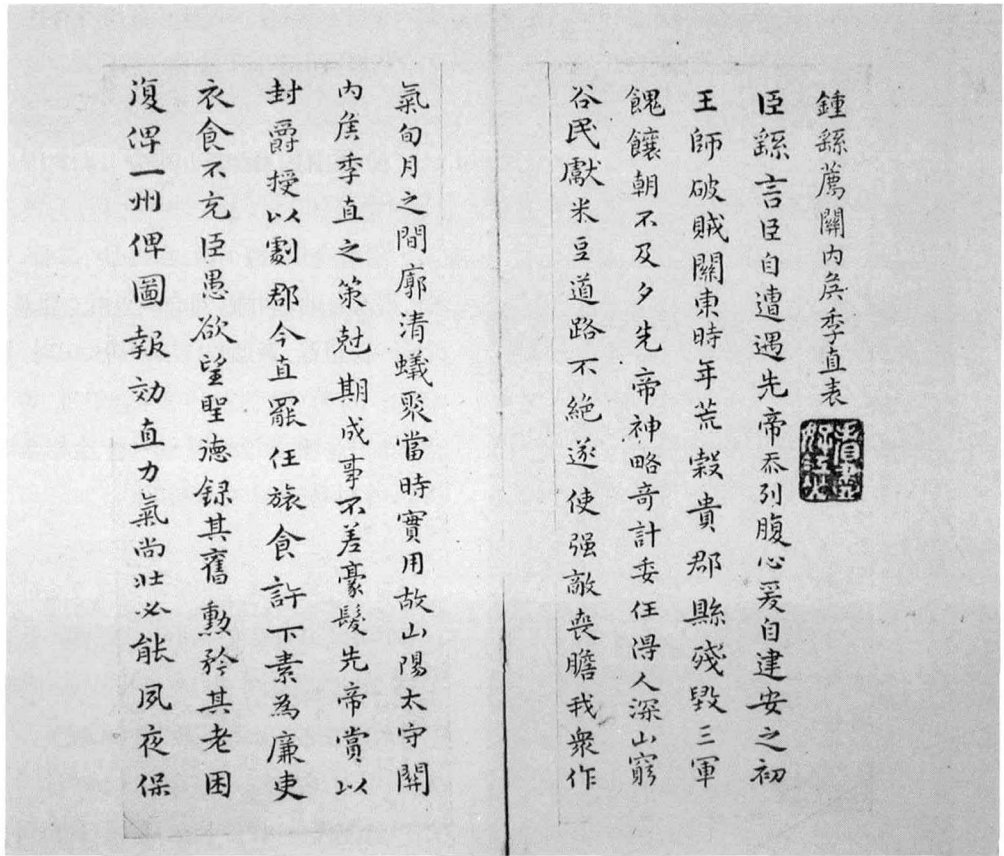 鍾繇薦關內矦季直表
臣繇言臣自遭遇先帝忝列腹心爰自建安之初
王師破賊關東時年荒穀貴郡縣殘毀三軍
餽饟朝不及夕先帝神略奇計委任得人深山窮
谷民獻米豆道路不絕遂使强敵喪膽我衆作
氣旬月之間廓清蟻聚當時實用故山陽太守關
內矦季直之策尅期成事不差豪髮先帝賞以
封爵授以劇郡今直罷任旅食許下素為廉吏
衣食不充臣愚欲望聖德録其舊勲矜其老困
復俾一州俾圖報効直力氣尚壯必能夙夜保